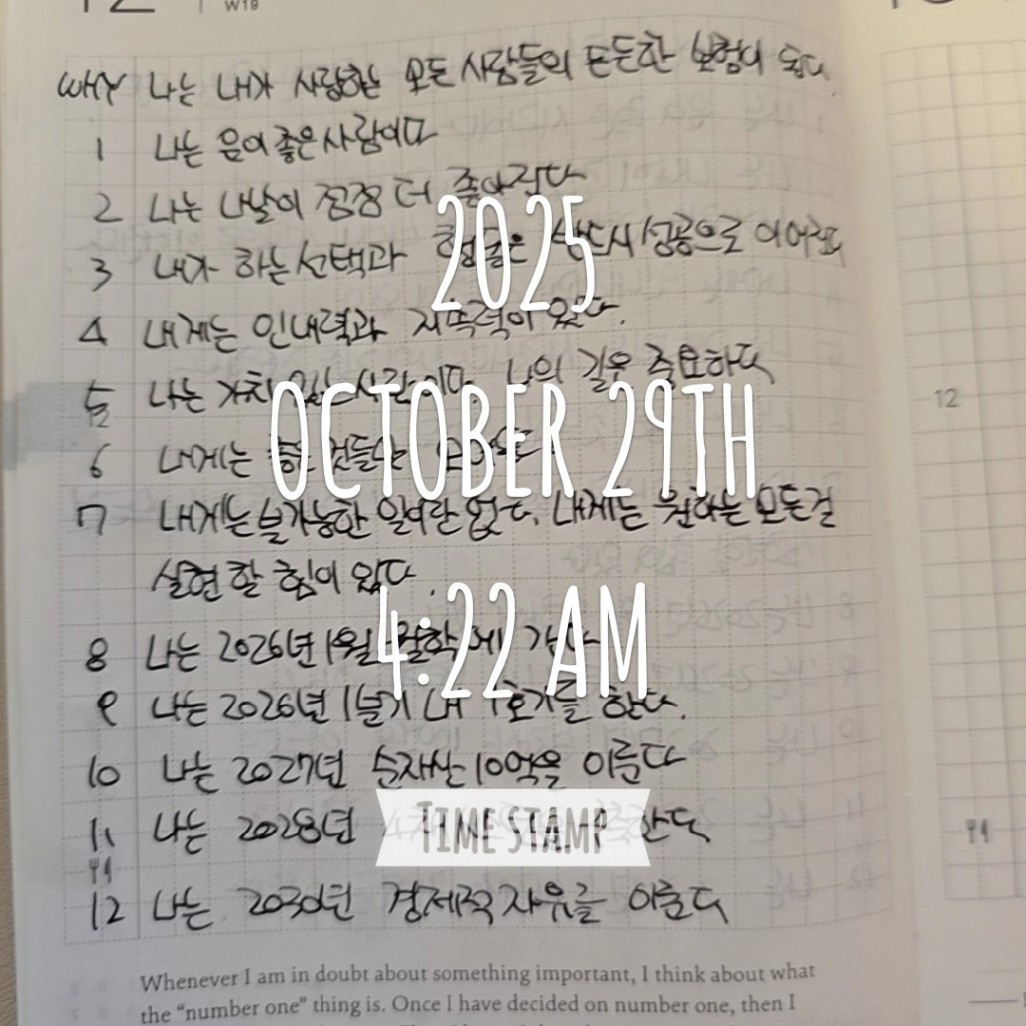 W19
WHY 나는 내가 사랑하는 모든 사람들의 든든한 보험이 된다.
1 나는 운이 좋은 사람이다
2 나는 나날이 점점 더 좋아진다
2025
3 내가 하는 선택과 성공으로 이어진다
4 내게는 인내력과 지속력이 있다.
5 나는 가치 있는 사람이다. 나의 길은 중요하다
OCTOBER 29TH
6 내게는
7 내게는 불가능한 일이란 없다. 내게는 원하는 모든걸
실현할 힘이 있다.
4:22 AM
8 나는 2026년 1월 에 간다
9 나는 2026년 1분기 내 1호기를 한다.
10 나는 2027년 순자산 10억을 이룬다
11 나는 2028년 한다
TIME STAMP
PM
12 나는 2030년 경제적 자유를 이룬다
12
PM
Whenever I am in doubt about something important, I think about what
the “number one” thing is. Once I have decided on number one, then I